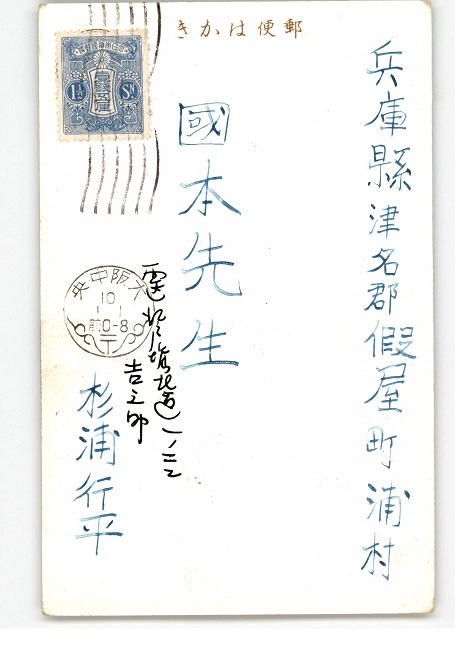 郵便はかき
大日本帝國郵便
壹錢五厘
1½ Sn
兵庫縣津名郡假屋町浦村
國本先生
大阪中央
10
1 1
前0-8
吉之助
杉浦行平